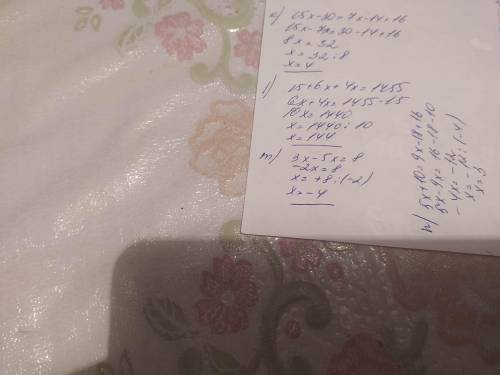 к) 15x-30=7x-14+16
15x-7x=30-14+16
8x=32
x=32:8
x=4
l) 15+6x+4x=1455
6x+4x=1455-15
10x=1440
x=1440:10
x=144
m) 3x-5x=8
-2x=8
x=+8:(-2)
x=-4
n) 5x+10=9x-18+16
5x-9x=16-18-10
-4x=-12
x=-12:(-4)
x=3